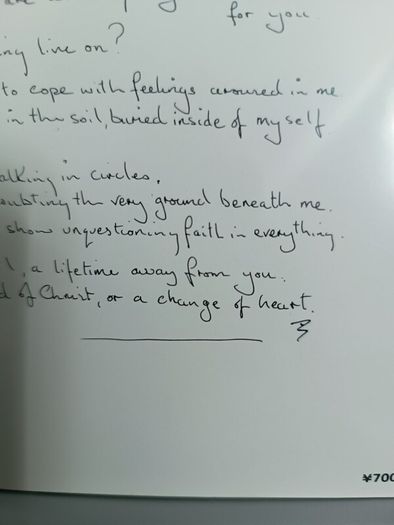 for you
ing live on?
to cope with feelings aroused in me
in the soil, buried inside of myself
alking in circles,
oubting the very ground beneath me.
show unquestioning faith in everything.
, a lifetime away from you.
d of Christ, or a change of heart.
¥700